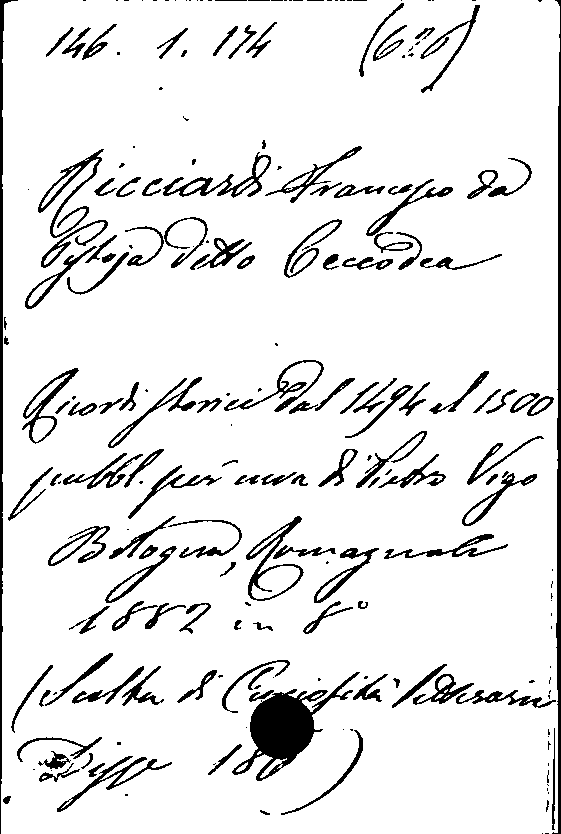 146. 1. 174 (626)
Ricciardi Francesco da
Pistoja ditto Ceccodea
Ricordi storici dal 1494 al 1500
pubbl. per cura di Pietro Vigo
Bologna, Romagnoli
1882 in 8°
(Scelta di Curiosità letterarie
Disp. 186)